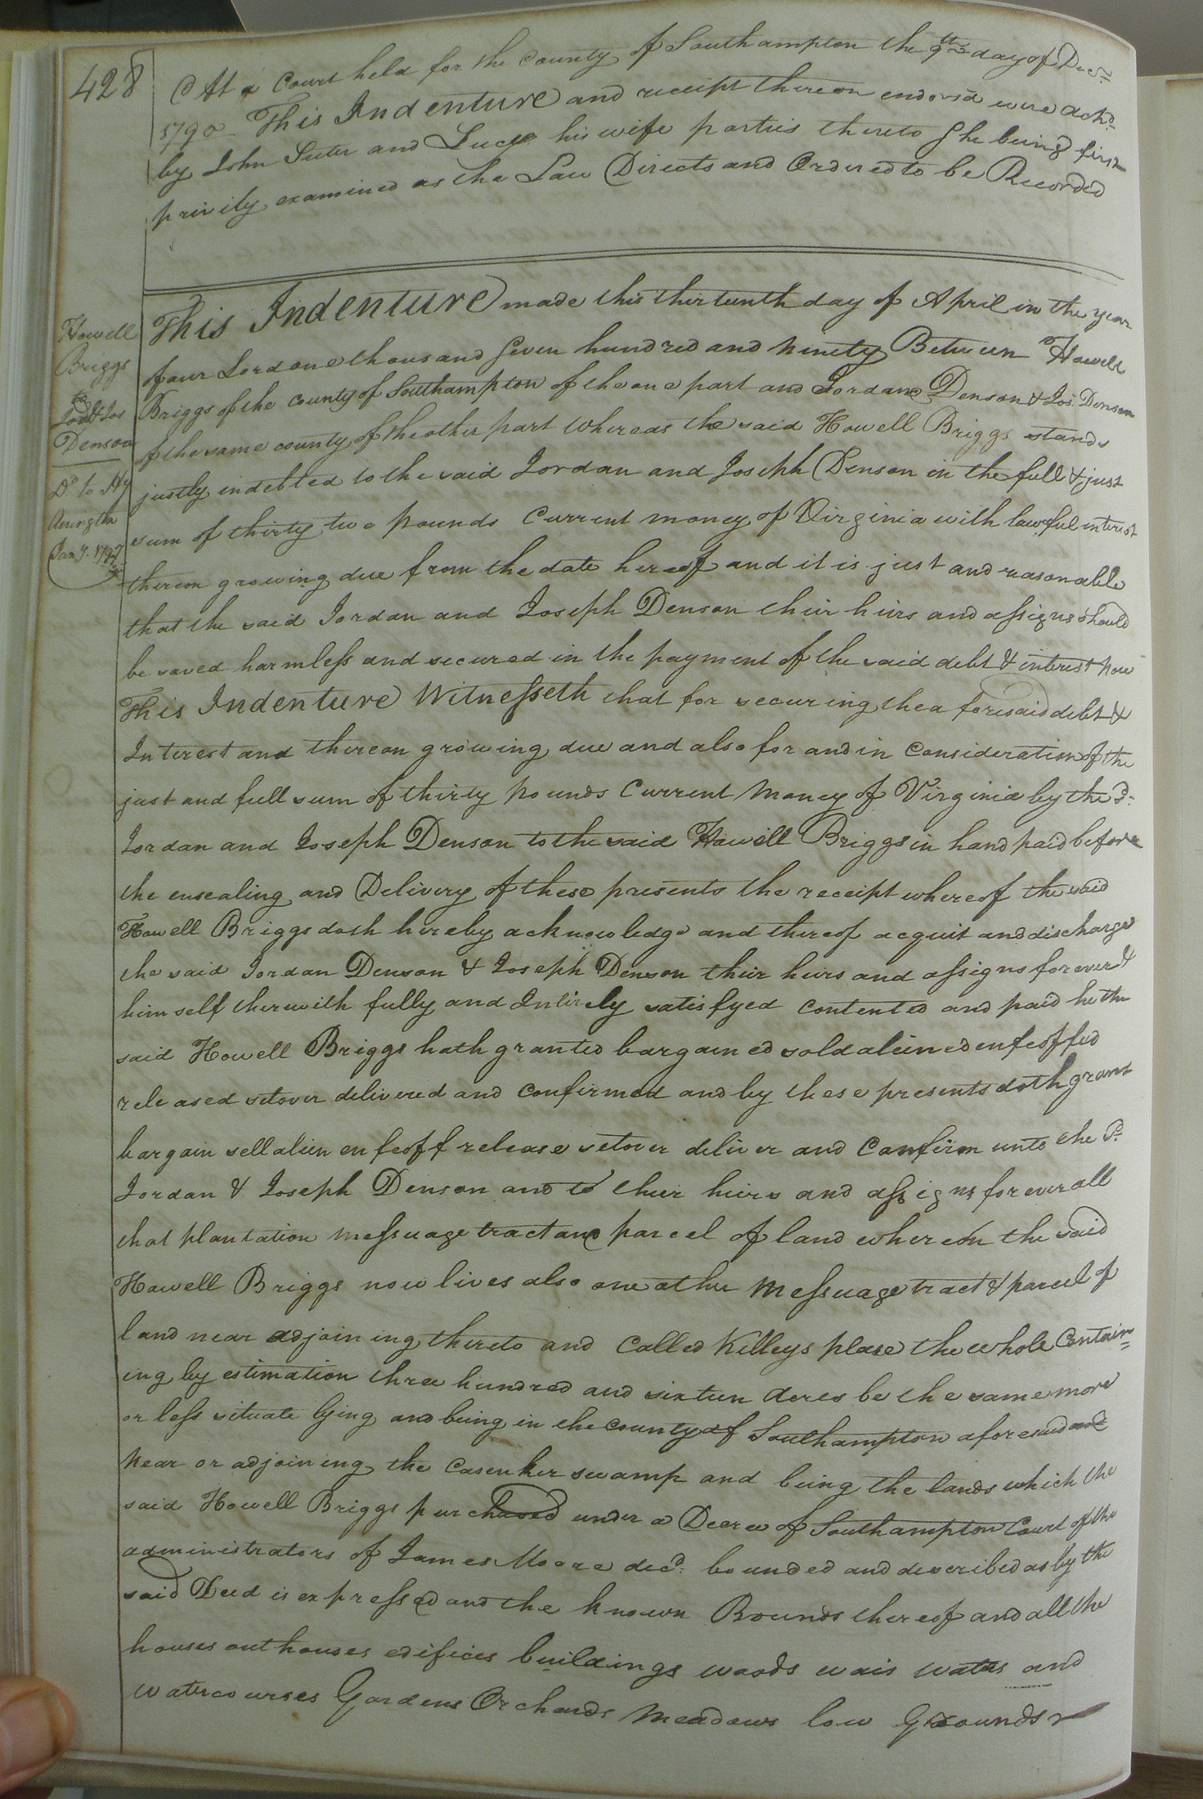 428
At a Court held for the County of Southampton the 9th day of Decr.
1790 This Indenture and receipt thereon endorsd were ackd.
by John Suter and Lucy his wife parties thereto She being first
privily examined as the Law Directs and Ordered to be Recorded
Howell
Briggs
to
Jord & Jos
Denson
Dd. to Hy
Jany. 1797
This Indenture made this thirteenth day of April in the year
of our Lord one thousand Seven hundred and ninety Between Howell
Briggs of the County of Southampton of the one part and Jordan Denson & Jos. Denson
of the same county of the other part Whereas the said Howell Briggs stands
justly indebted to the said Jordan and Joseph Denson in the full & just
sum of thirty two pounds Current money of Virginia with lawful interest
thereon growing due from the date hereof and it is just and reasonable
that the said Jordan and Joseph Denson their heirs and assigns should
be saved harmless and secured in the payment of the said debt & interest now
This Indenture Witnesseth that for securing the aforesaid debt &
Interest and thereon growing due and also for and in Consideration of the
just and full sum of thirty pounds Current Money of Virginia by the sd.
Jordan and Joseph Denson to the said Howell Briggs in hand paid before
the ensealing and Delivery of these presents the receipt whereof the said
Howell Briggs doth hereby acknowledge and thereof acquit and discharge
the said Jordan Denson & Joseph Denson their heirs and assigns forever &
him self therewith fully and Intirely satisfyed contented and paid he the
said Howell Briggs hath granted bargained sold aliened enfeoffed
released setover delivered and confirmed and by these presents doth grant
bargain sell alien enfeoff release setover deliver and Confirm unto the sd.
Jordan & Joseph Denson and to their heirs and assigns forever all
that plantation messuage tract and parcel of land whereon the said
Howell Briggs now lives also one other Messuage tract & parcel of
land near adjoining thereto and Called Killeys place the whole Contain=
ing by estimation three hundred and sixteen Acres be the same more
or less situate lying and being in the county of Southampton aforesaid and
near or adjoining the swamp and being the lands which the
said Howell Briggs purchased under a Decree of Southampton Court of the
administrators of James Moore decd. bounded and described as by the
said Deed is expressed and the known Bounds thereof and all the
houses outhouses edifices buildings woods wais waters and
watercourses Gardens Orchards Meadows low Grounds